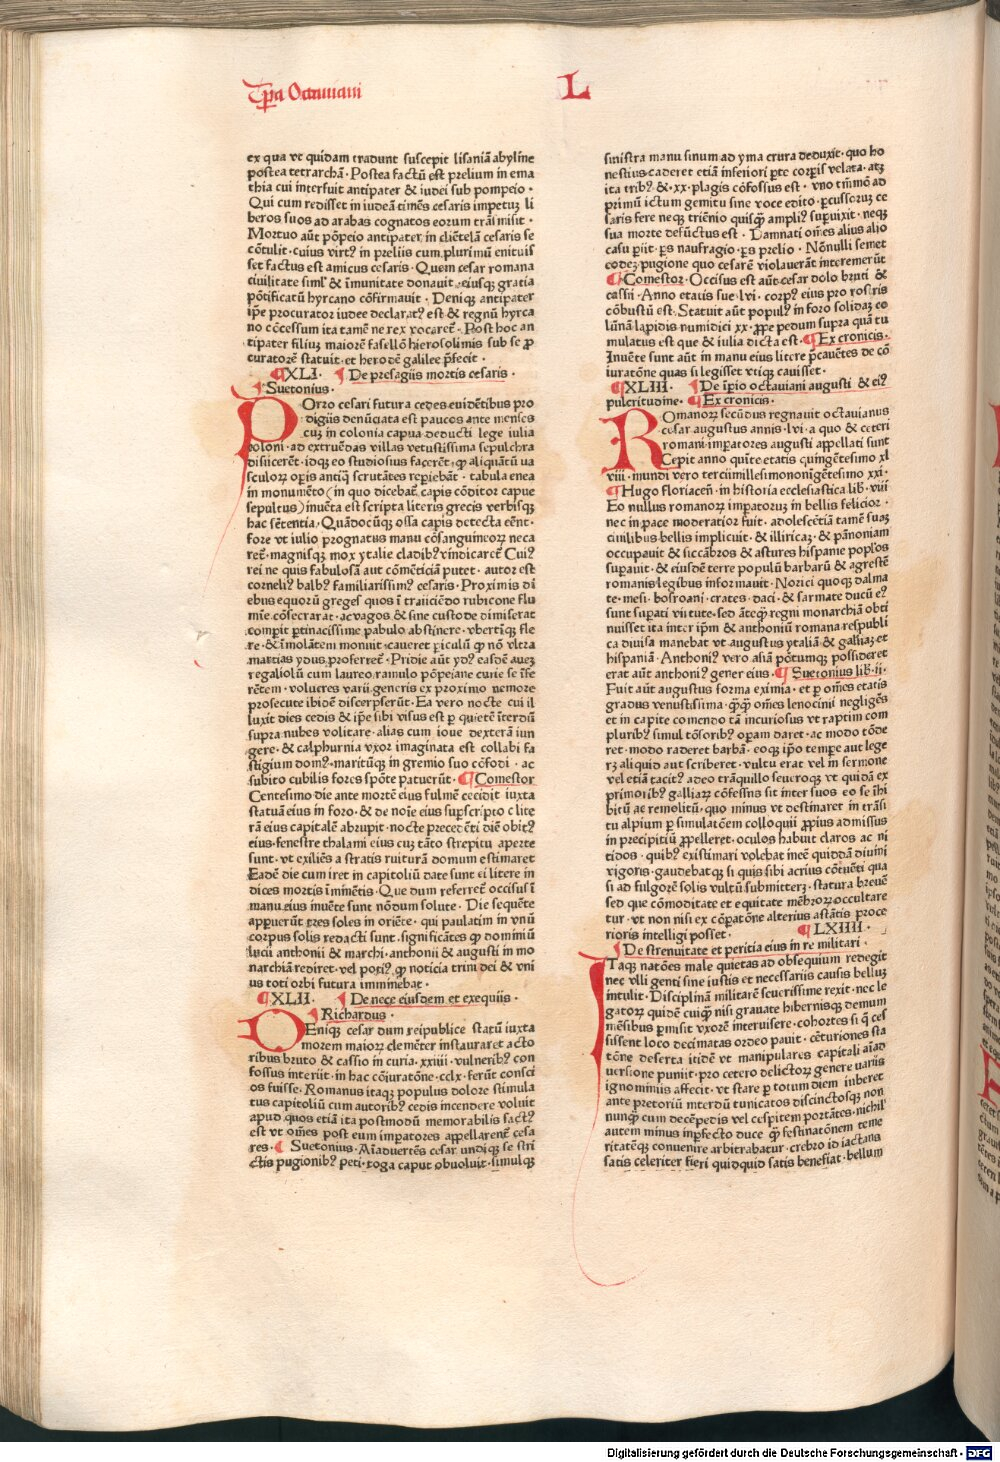 Tꝑa Octauiani
L
ex qua vt quidam tradunt suscepit lisaniā abyline
postea tetrarchā · Postea factū est prelium in ema
thia cui interfuit antipater & iudei sub pompeio ·
Qui cum redisset in iudeā timēs cesaris impetuz li
beros suos ad arabas cognatos eorum trāsmisit ·
Mortuo aūt pōpeio antipater in cliētelā cesaris se
cōtulit · cuius virtꝰ in preliis cum plurimū enituis
set factus est amicus cesaris · Quem cesar romana
ciuilitate simłˀ & īmunitate donauit · eiusqꝫ gratia
pōtificatū hyrcano cōfirmauit · Deniqꝫ antipater
ip̄e procurator iudee declaratꝰ est & regnū hyrca
no cōcessum ita tamē ne rex vocaret̄ · Post hoc an
tipater filiuꝫ maiorē fasellō hierosolimis sub se ꝓ
curatorē statuit · et herodē galilee p̄fecit ·
¶XLI · ¶ De presagiis mortis cesaris ·
¶Suetonius ·
POrro cesari futura cedes euidētibus pro
digiis denūciata est paucos ante menses
cuꝫ in colonia capua deducti lege iulia
coloni · ad extruēdas villas vetustissima sepulchra
disiicerēt · idqꝫ eo studiosius facerēt · ꝙ aliquātū va
sculoꝝ oꝑis antiq̄ scrutātes reꝑiebāt · tabula enea
in monumēto (in quo dicebat̄ capis cōditor capue
sepultus) inuēta est scripta literis grecis verbisqꝫ
hac sētentia · Quādocūqꝫ ossa capis detecta eēnt ·
fore vt iulio prognatus manu cōsanguineoꝝ neca
ret̄ · magnisqꝫ mox ytalie cladibꝰ vindicaret̄ Cuiꝰ
rei ne quis fabulosā aut cōmēticiā putet · autor est
corneliꝰ balbꝰ familiarissimꝰ cesaris · Proximis di
ebus equorū greges quos ī traiiciēdo rubicone flu
mīe cōsecrarat · ac vagos & sine custode dimiserat
comꝑit ꝑtinacissime pabulo abstinere · vbertīqꝫ fle
re · & īmolātem monuit · caueret ꝑiculū ꝙ nō vltra
martias ydus proferret̄ · Pridie aūt ydꝰ easdē aueꝫ
regaliolū cum laureo ramulo pōpeiane curie se īfe
rētem · volucres varii generis ex proximo nemore
prosecute ibidē discerpserūt · Ea vero nocte cui il
luxit dies cedis & ip̄e sibi visus est ꝑ quietē īterdū
supra nubes volitare · alias cum ioue dexterā iun
gere · & calphurnia vxor imaginata est collabi fa
stigium domꝰ · maritūqꝫ in gremio suo cōfodi · ac
subito cubilis fores spōte patuerūt · ¶Comestor
Centesimo die ante mortē eius fulmē cecidit iuxta
statuā eius in foro · & de noīe eius suꝑscripto c lite
rā eius capitalē abrupit · nocte precedēti diē obitꝰ
eius · fenestre thalami eius cuꝫ tāto strepitu aperte
sunt · vt exiliēs a stratis ruiturā domum estimaret
Eadē die cum iret in capitoliū date sunt ei litere in
dices mortis īminētis · Que dum referret̄ occisus ī
manu eius inuēte sunt nōdum solute · Die sequēte
apꝑuerūt tres soles in oriēte · qui paulatim in vnū
corpus solis redacti sunt · significātes ꝙ dominiū
lucii anthonii & marchi · anthonii & augusti in mo
narchiā rediret · vel potiꝰ ꝙ noticia trini dei & vni
us toti orbi futura imminebat ·
¶XLII · ¶ De nece eiusdem et exequiis ·
¶ Richardus ·
DEniqꝫ cesar dum reipublice statū iuxta
morem maioꝝ clemēter instauraret a cto
ribus bruto & cassio in curia · xxiiii · vulneribꝰ con
fossus interiit · in hac cōiuratōne · cclx · ferūt consci
os fuisse · Romanus itaqꝫ populus dolore stimula
tus capitoliū cum autoribꝰ cedis incendere voluit
apud quos etiā ita postmodū memorabilis factꝰ
est vt om̄es post eum imꝑatores appellarent̄ cesa
res · ¶ Suetonius · Aīaduertēs cesar vndiqꝫ se stri
ctis pugionibꝰ peti · toga caput obuoluit · simulqꝫ
sinistra manu sinum ad yma crura deduxit · quo ho
nestius caderet etiā inferiori ꝑte corꝑis velata · atqꝫ
ita tribꝰ & · xx · plagis cōfossus est · vno tm̄mō ad
primū ictum gemitu sine voce edito · ꝑcussoruꝫ ce
saris fere neqꝫ triēnio quisq̄ ampliꝰ suꝑuixit · neqꝫ
sua morte defūctus est · Damnati om̄es alius alio
casu ꝑiit · ꝑs naufragio · ꝑs prelio · Nōnulli semet
codeꝫ pugione quo cesarē violauerāt interemerūt
¶Comestor · Occisus est aūt cesar dolo bruti &
cassii · Anno etatis sue · lvi · corpꝰ eius pro rostris
cōbustū est · Statuit aūt populꝰ in foro solidaꝫ co
lūnā lapidis numidici xx · ꝓpe pedum supra quā tu
mulatus est que & iulia dicta est · ¶Ex cronicis ·
Inuēte sunt aūt in manu eius litere p̄cauētes de cō
iuratōne quas si legisset vtiqꝫ cauisset ·
¶XLIII · ¶De īpio octauiani augusti & eiꝰ
pulcritudine · ¶Ex cronicis ·
ROmanoꝝ secūdus regnauit octauianus
cesar augustus annis · lvi · a quo & ceteri
romani imꝑatores augusti appellati sunt
Cepit anno quīte etatis quingētesimo xl
viii · mundi vero tercumillesimononigētesimo xxi ·
¶Hugo floriaceñ · in historia ecclesiastica lib̄ · viii
Eo nullus romanoꝝ imꝑatoruꝫ in bellis felicior ·
nec in pace moderatior fuit · adolescētiā tamē suaꝫ
ciuilibus bellis implicuit · & illiricaꝫ · & pānoniam
occupauit & succābros & astures hispanie pop̄los
suꝑauit · & eiusdē terre populū barbarū & agrestē
romanis legibus informauit · Norici quoqꝫ dalma
te · mesi · bosroani · crates · daci · & sarmate ducū eꝰ
sunt suꝑati virtute · sed āteq̄ regni monarchiā obti
nuisset ita inter ip̄m & anthoniū romana respubli
ca diuisa manebat vt augustus ytaliā & galliaꝫ et
hispaniā · Anthoniꝰ vero asiā pōtumqꝫ possideret
erat aūt anthoniꝰ gener eius · ¶ Suetonius lib̄ · ii ·
Fuit aūt augustus forma eximia · et ꝑ om̄es etatis
gradus venustissima · q̄q̄ om̄es lenocinii negligēs
et in capite comendo tā incuriosus vt raptim com
pluribꝰ simul tōsoribꝰ oꝑam daret · ac modo tōde
ret · modo raderet barbā · eoqꝫ ip̄o tempe aut lege
rꝫ aliquid aut scriberet · vultu erat vel in sermone
vel etiā tacitꝰ adeo trāquillo seueroqꝫ vt quidā ex
primoribꝰ galliaꝝ cōfessus sit inter suos eo se īhi
bitū ac remolitū · quo minus vt destinaret in trāsi
tu alpium ꝑ simulatōem colloquii ꝓpius admissus
in precipitiū ꝓpelleret · oculos habuit claros ac ni
tidos · quibꝰ existimari volebat inee quiddā diuini
vigoris · gaudebatqꝫ si quis sibi acrius cōtuēti qua
si ad fulgorē solis vultū submitterꝫ · statura breuē
sed que cōmoditate et equitate mēbroꝝ occultare
tur · vt non nisi ex cōꝑatōne alterius astātis proce
rioris intelligi posset · ¶ LXIIII ·
¶De strenuitate et peritia eius in re militari ·
ITaqꝫ natōnes male quietas ad obsequium redegit
nec vlli genti sine iustis et necessariis causis belluꝫ
intulit · Disciplinā militarē seuerissime rexit · nec le
gatoꝝ quidē cuiq̄ nisi grauate hibernisqꝫ demum
mēsibus ꝑmisit vxorē interuisere · cohortes si q̄ ces
sissent loco decimatas ordeo pauit · cēturiones sta
tōne deserta itidē vt manipulares capitali aīad
uersione puniit · pro cetero delictoꝝ genere variis
ignominiis affecit · vt stare ꝑ totum diem iuberet
ante pretoriū interdū tunicatos discinctosqꝫ non
nunq̄ cum decēpedis vel cespitem portātes · nichil
autem minus inꝑfecto duce q̄ festinatōnem teme
ritatēqꝫ conuenire arbitrabatur · crebro id iactans
satis celeriter fieri quidquid satis benefiat · bellum
Digitalisierung gefördert durch die Deutsche Forschungsgemeinschaft · DFG